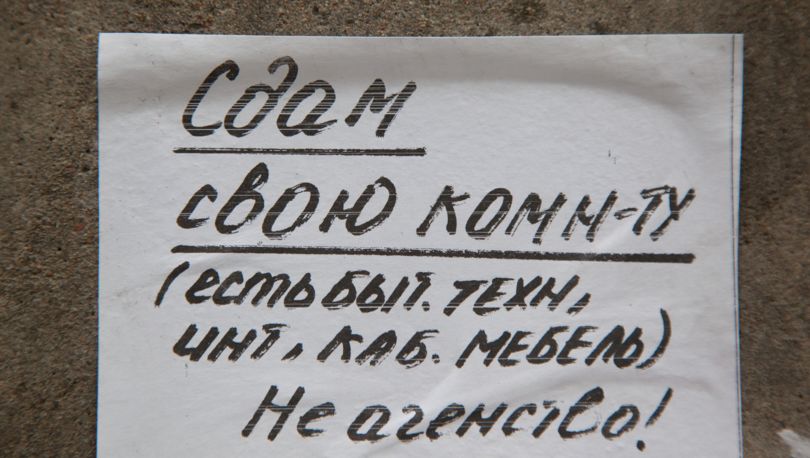 Сдам
свою комн-ту
(есть быт. техн,
инт, каб. мебель)
Не агенство!